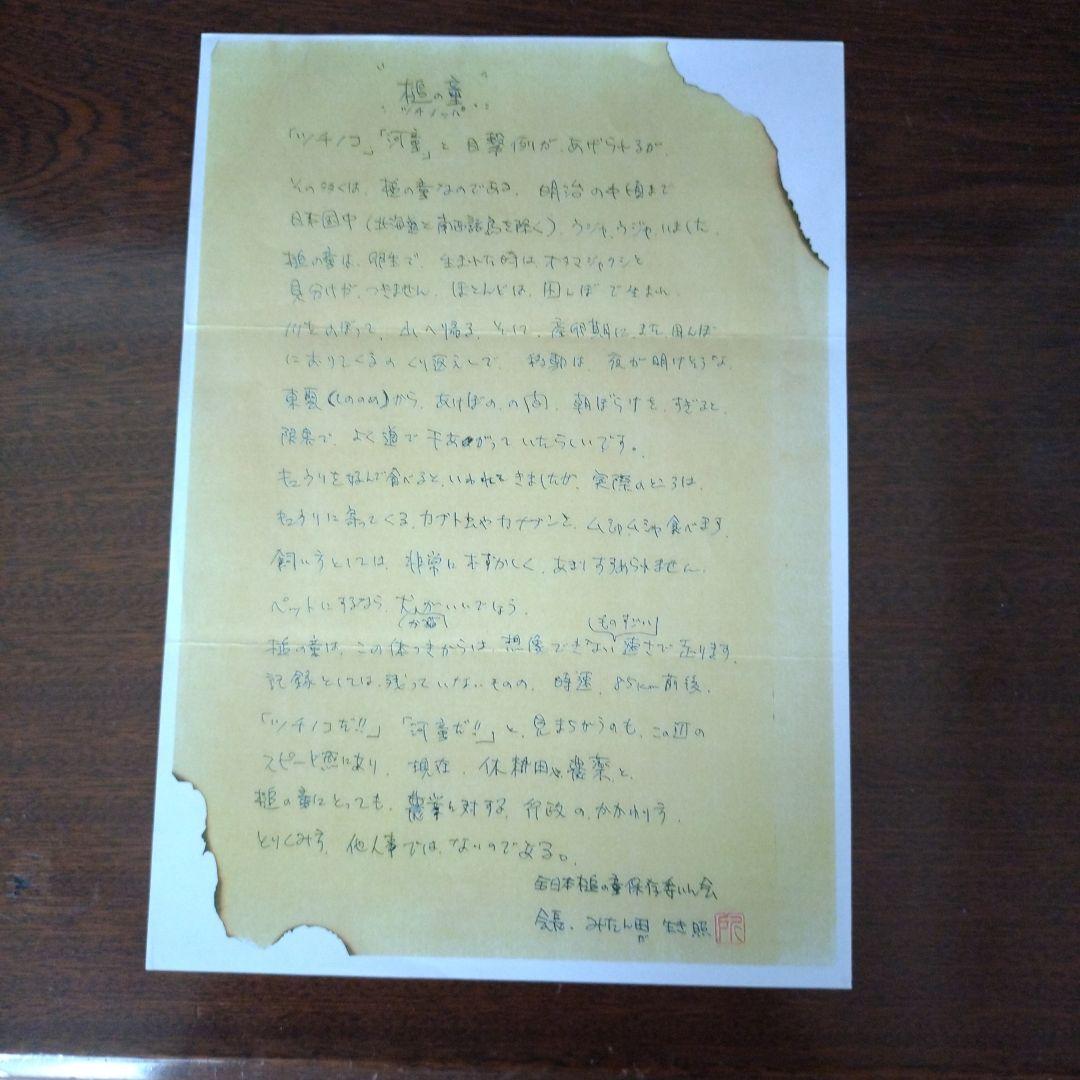 "槌の童"
ツチノッパ
「ツチノコ」「河童」と目撃例が、あげられるが、
その多くは、槌の童なのである。明治の中頃まで
日本国中(北海道と南西諸島を除く)、ウジャ、ウジャ、いました。
槌の童は、卵生で、生まれた時は、オタマジャクシと
見分けが、つきません。ほとんどは、田んぼで生まれ、
川をのぼって、山へ帰る。そして、産卵期に、また田んぼ
におりてくるの くり返えしで、移動は、夜が明けそうな、
東雲(しののめ)から、あけぼの、の間、朝ぼらけを、すぎると、
限界で、よく道で干あがっていたらしいです。
キュウリを好んで食べると、いわれてきましたが、実際のところは、
キュウリに寄ってくる、カブト虫やカナブンを、ムシャ、ムシャ食べます。
飼い方としては、非常にむずかしく、あまりすすめられません。
ペットにするなら、犬がいいでしょう。
(か猫)
(ものすごい)
槌の童は、この体つきからは、想像できない速さで走ります。
記録としては、残っていないものの、時速、85km前後。
「ツチノコだ!!」「河童だ!!」と、見まちがうのも、この辺の
スピード感にあり、現在、休耕田と農薬と、
槌の童にとっても、農業に対する、行政の、かかわり方、
とりくみ方、他人事では、ないのである。
全日本槌の童保存委いん会
会長、みたん田 生き照